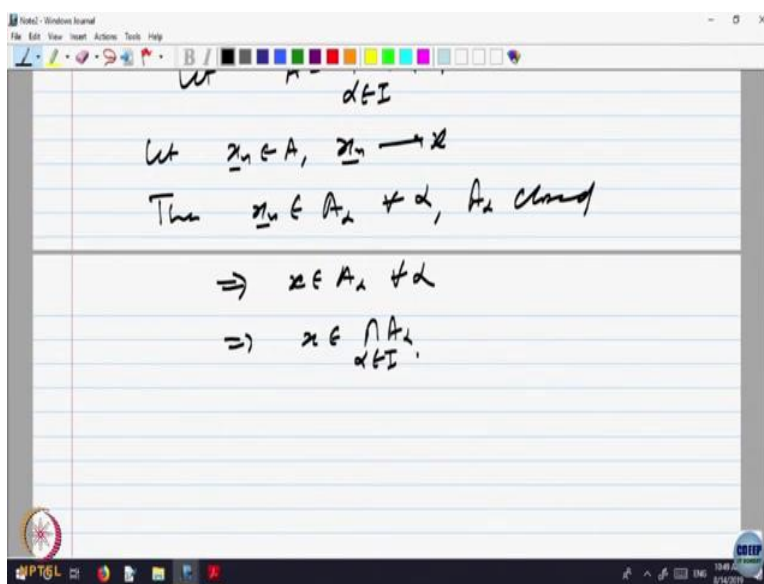 Note2 - Windows Journal
File Edit View Insert Actions Tools Help
Let A =
α∈I
Let x_n ∈ A, x_n → x
Then x_n ∈ A_α ∀ α, A_α closed
⇒ x ∈ A_α ∀ α
⇒ x ∈ ∩ A_α.
α∈I
NPTEL
CDEEP
ENG
8/14/2019